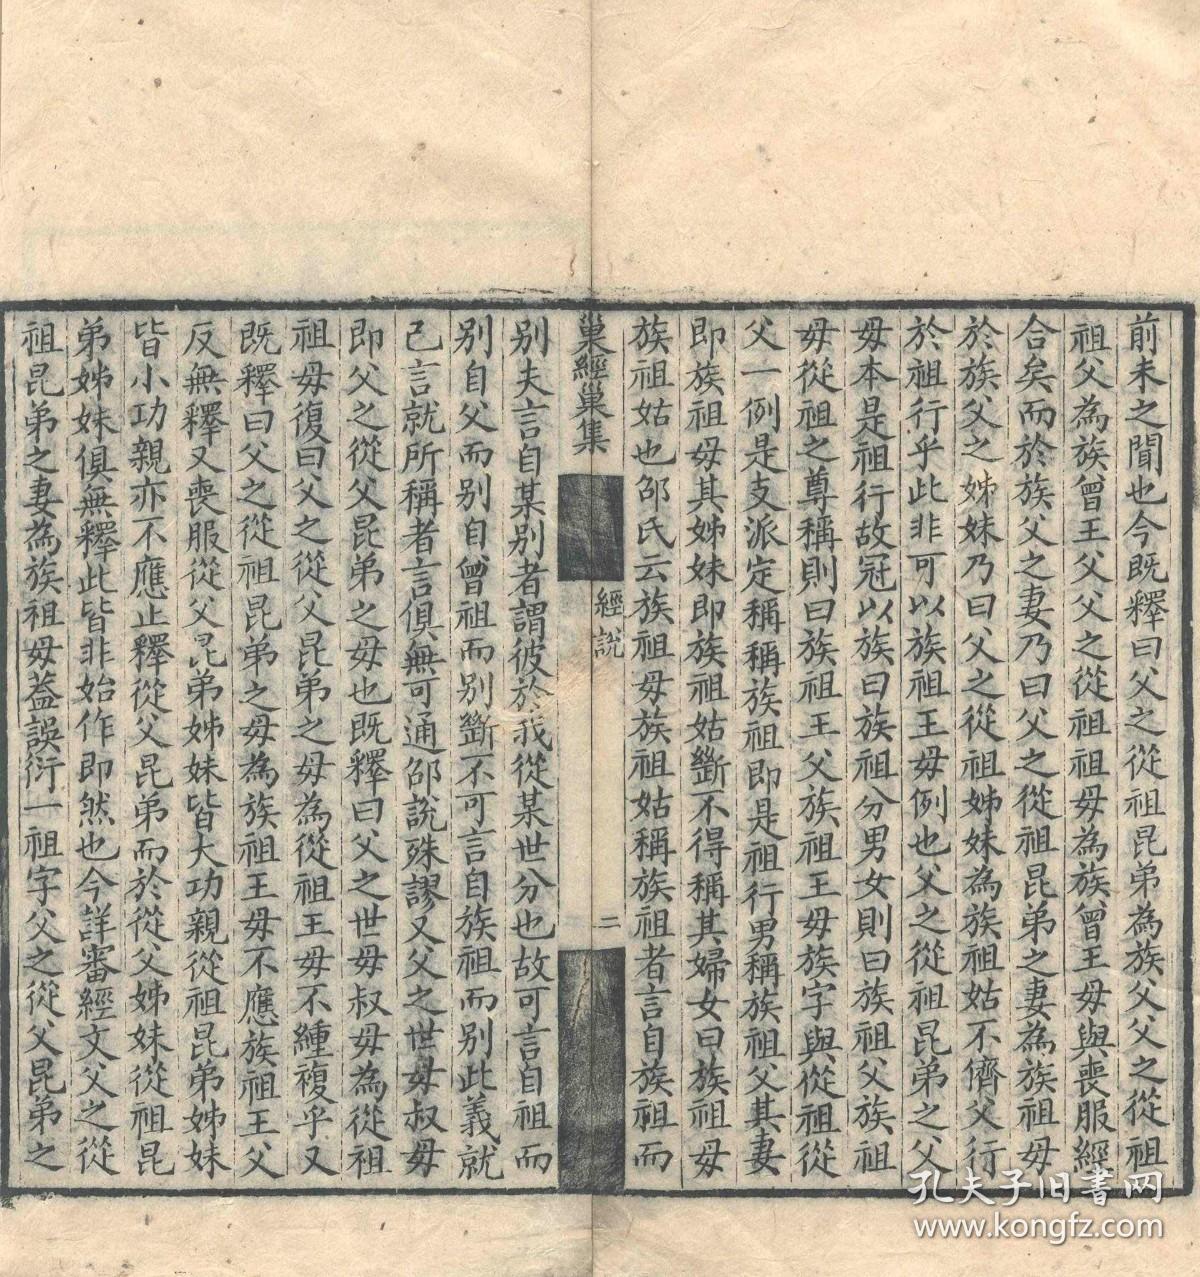 前未之聞也今既釋曰父之從祖昆弟為族父父之從祖
祖父為族曾王父父之從祖祖母為族曾王母與喪服經
合矣而於族父之妻乃曰父之從祖昆弟之妻為族祖母
於族父之姊妹乃曰父之從祖姊妹為族祖姑不儕父行
於祖行乎此非可以族祖王母例也父之從祖昆弟之父
母本是祖行故冠以族曰族祖分男女則曰族祖父族祖
母從祖之尊稱則曰族祖王父族祖王母族字與從祖從
父一例是支派定稱稱族祖即是祖行男稱族祖父其妻
即族祖母其姊妹即族祖姑斷不得稱其婦女曰族祖母
族祖姑也邵氏云族祖母族祖姑稱族祖者言自族祖而
巢經巢集 經說 二
別夫言自某別者謂彼於我從某世分也故可言自祖而
別自父而別自曾祖而別斷不可言自族祖而別此義就
己言就所稱者言俱無可通邵說殊謬又父之世母叔母
即父之從父昆弟之母也既釋曰父之世母叔母為從祖
祖母復曰父之從父昆弟之母為從祖王母不緟複乎又
既釋曰父之從祖昆弟之母為族祖王母不應族祖王父
反無釋又喪服從父昆弟姊妹皆大功親從祖昆弟姊妹
皆小功親亦不應止釋從父昆弟而於從父姊妹從祖昆
弟姊妹俱無釋此皆非始作即然也今詳審經文父之從
祖昆弟之妻為族祖母蓋誤衍一祖字父之從父昆弟之
孔夫子旧书网
www.kongfz.com